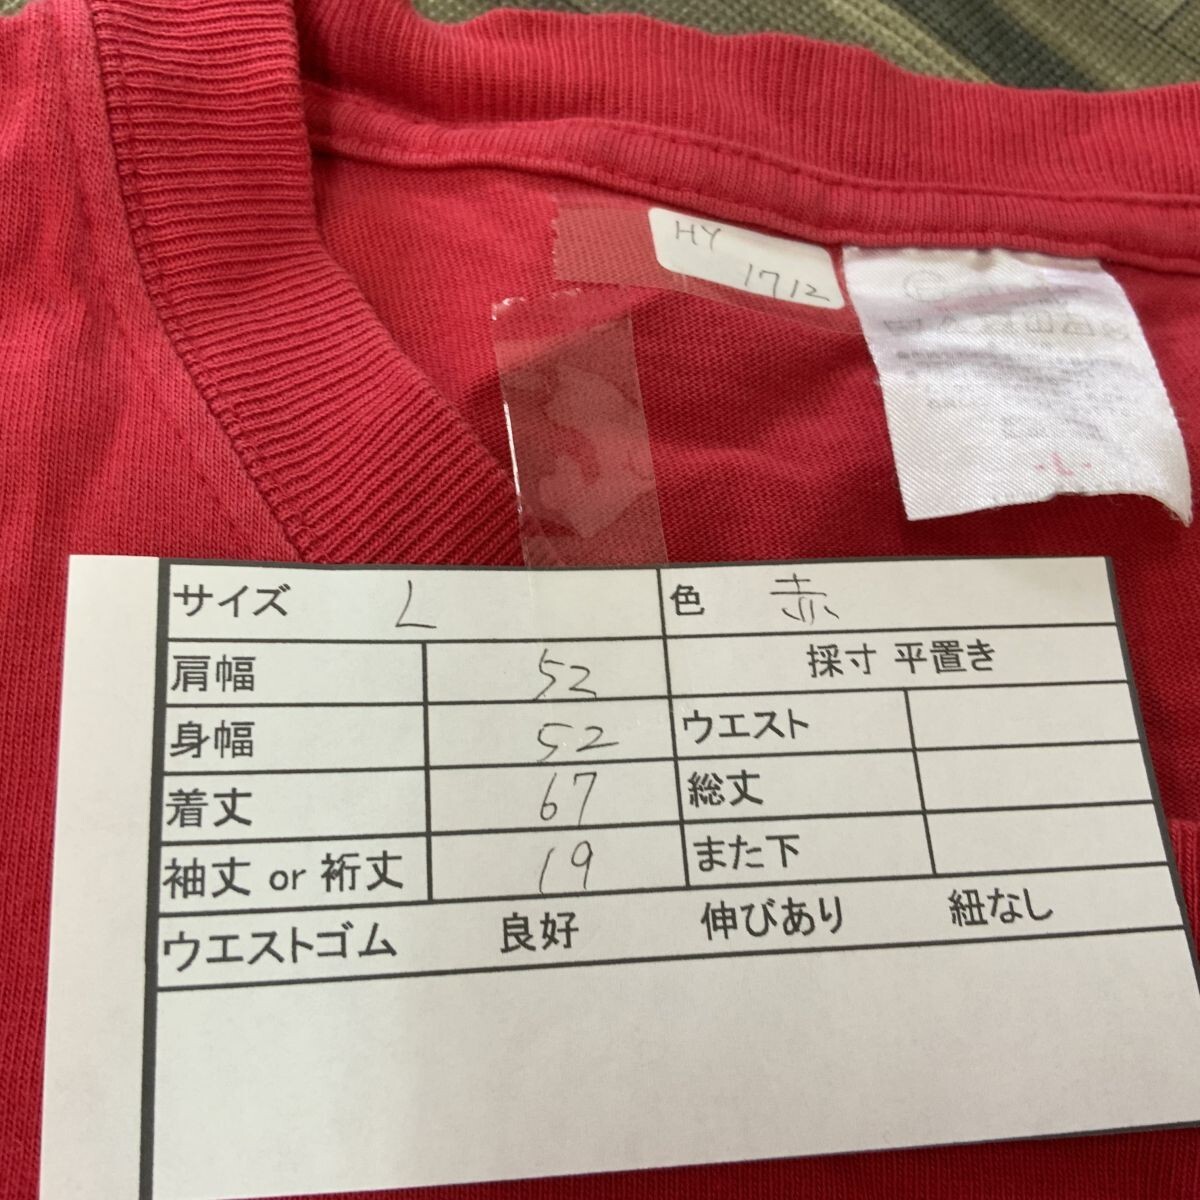 HY
1712
- L -
サイズ L 色 赤
肩幅 52 採寸 平置き
身幅 52 ウエスト
着丈 67 総丈
袖丈 or 裄丈 19 また下
ウエストゴム 良好 伸びあり 紐なし